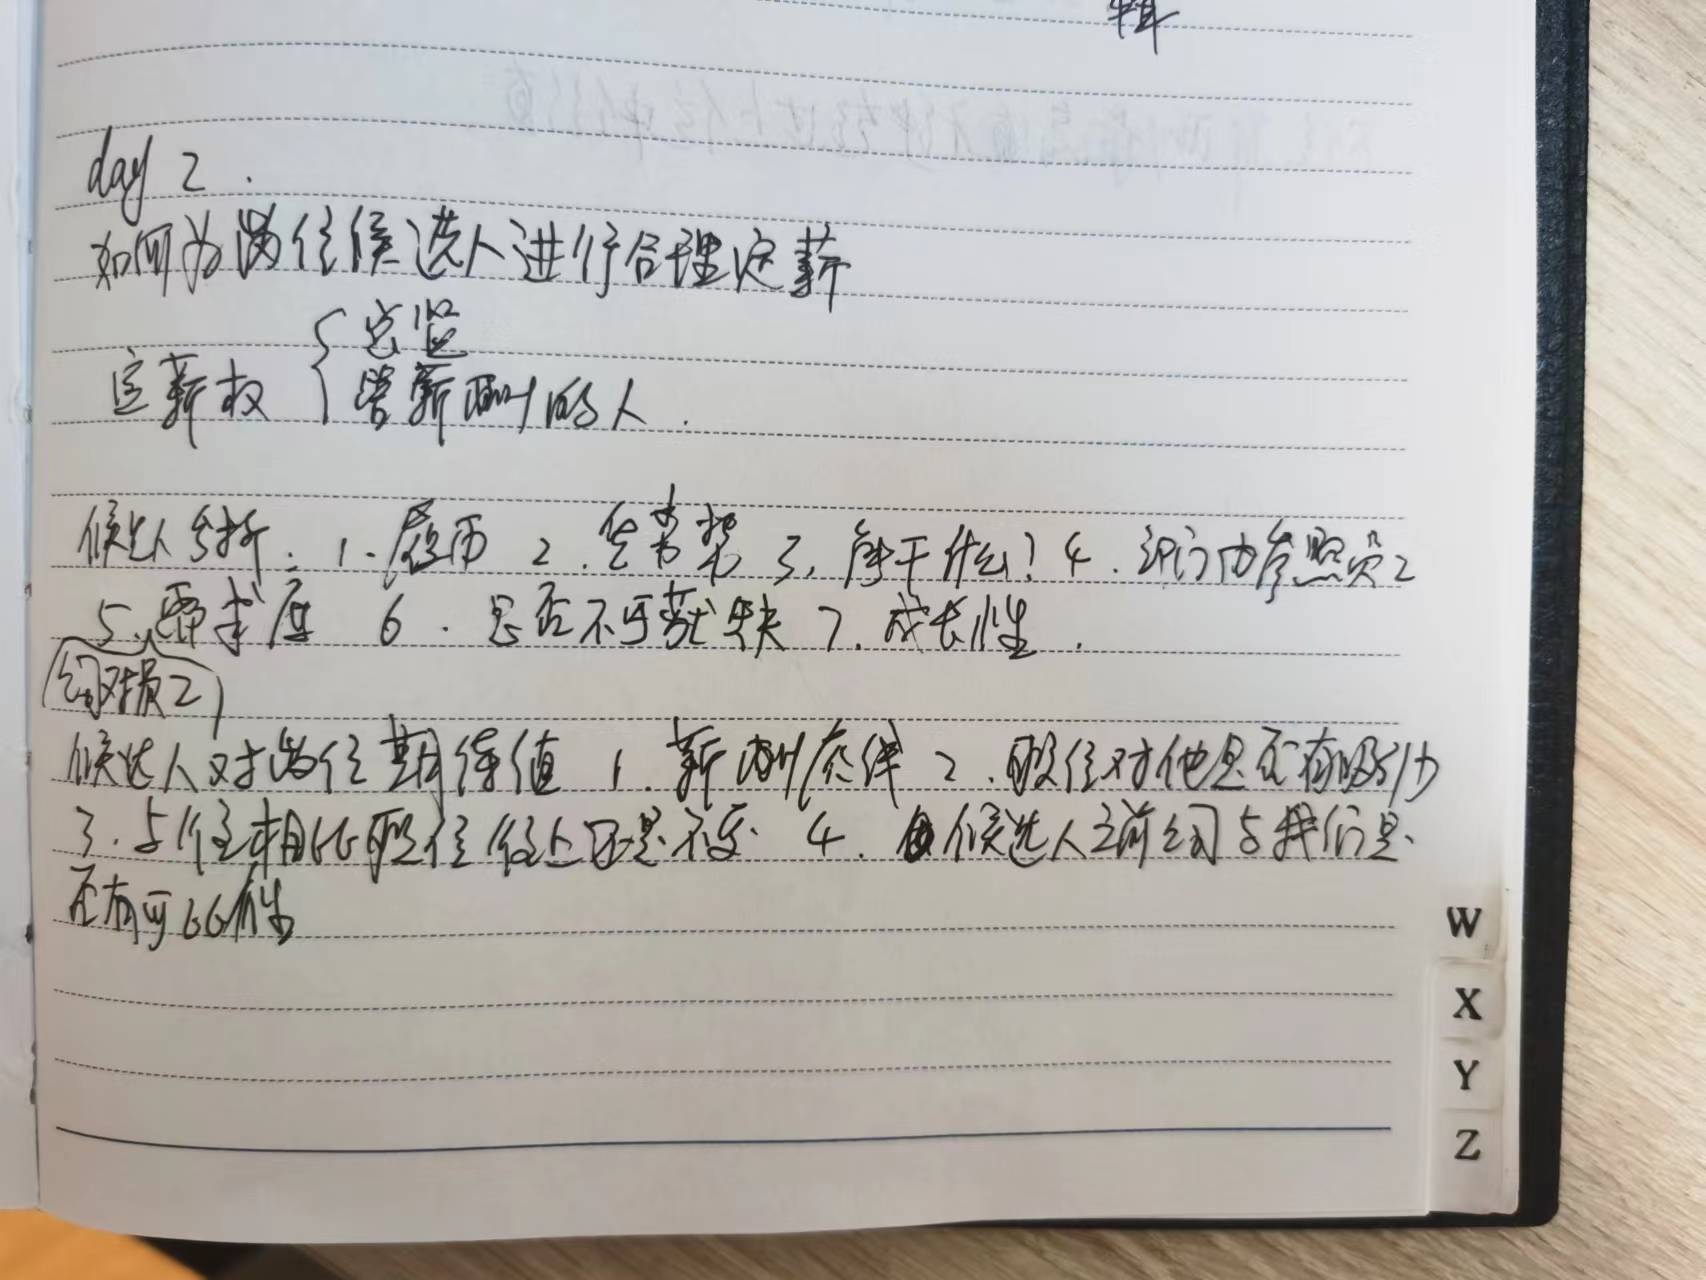 辑
day 2.
如何为岗位候选人进行合理定薪
定薪权 { 总监
管薪酬的人.
候选人分析: 1.履历 2.优劣势 3.能干什么? 4.部门内参照员工
5.需求度 6.是否不可或缺 7.成长性.
公司对员工
候选人对岗位期待值 1.薪酬底线 2.职位对他是否有吸引力
3.与往相比职位往上还是不变. 4.候选人之前公司与我们是
否有可比性
W
X
Y
Z